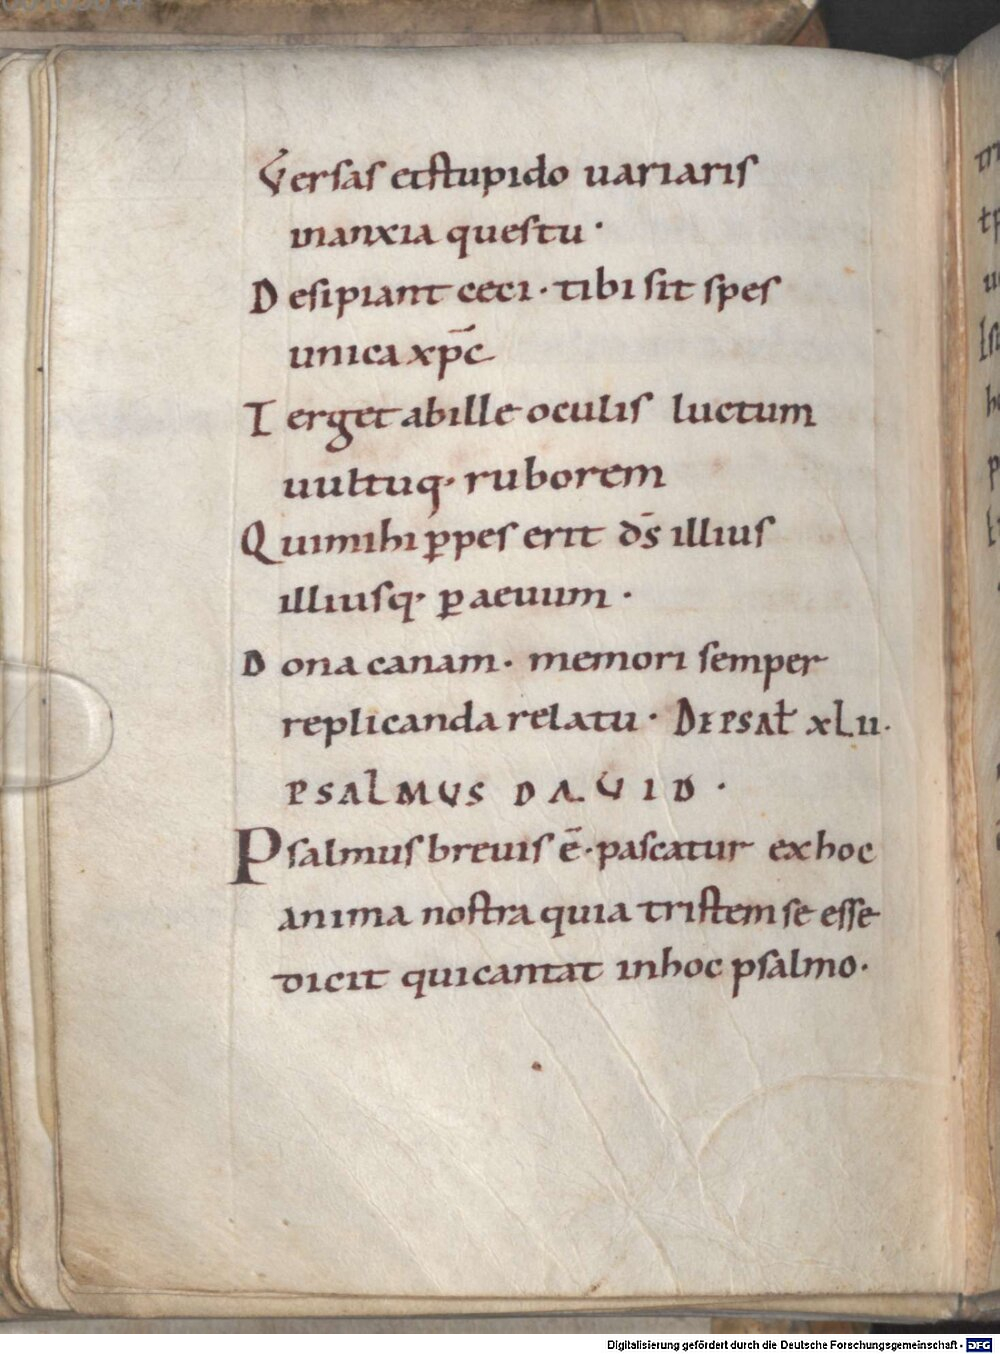 Versas et stupido uariaris
inanxia questu ·
Desipiant ceci · tibi sit spes
unica xp̄c
Terget ab ille oculis luctum
uultuq· ruborem
Qui mihi ꝑpes erit d̄s illius
illiusq· ꝑ aeuum ·
Dona canam · memori semper
replicanda relatu · DE PSAł XLII·
PSALMUS DAVID ·
Psalmus breuis ē · pascatur ex hoc
anima nostra quia tristem se esse
dicit qui cantat in hoc psalmo ·
Digitalisierung gefördert durch die Deutsche Forschungsgemeinschaft · DFG